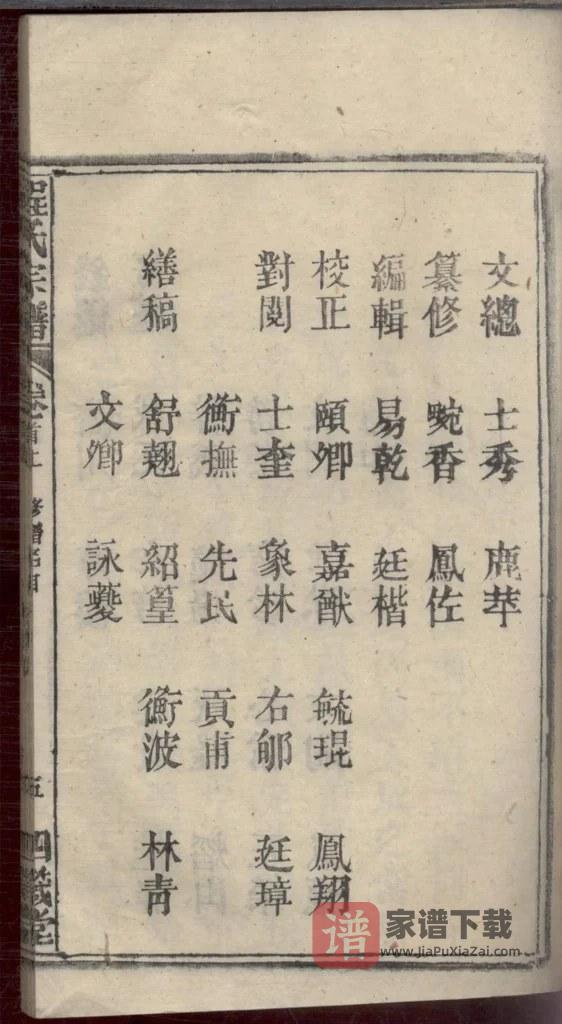 文總 士秀 鹿苹
纂修 畹香 鳳佐
編輯 易乾 廷楷
校正 頤卿 嘉猷 毓琨 鳳翔
對閱 士奎 象林 右邨 廷璋
衡撫 先民 貢甫
繕稿 舒翹 紹篁 衡波 林青
文卿 詠夔
氏宗譜 卷首上 修譜名目 五 四箴堂
譜 家谱下载
www.JiaPuXiaZai.com